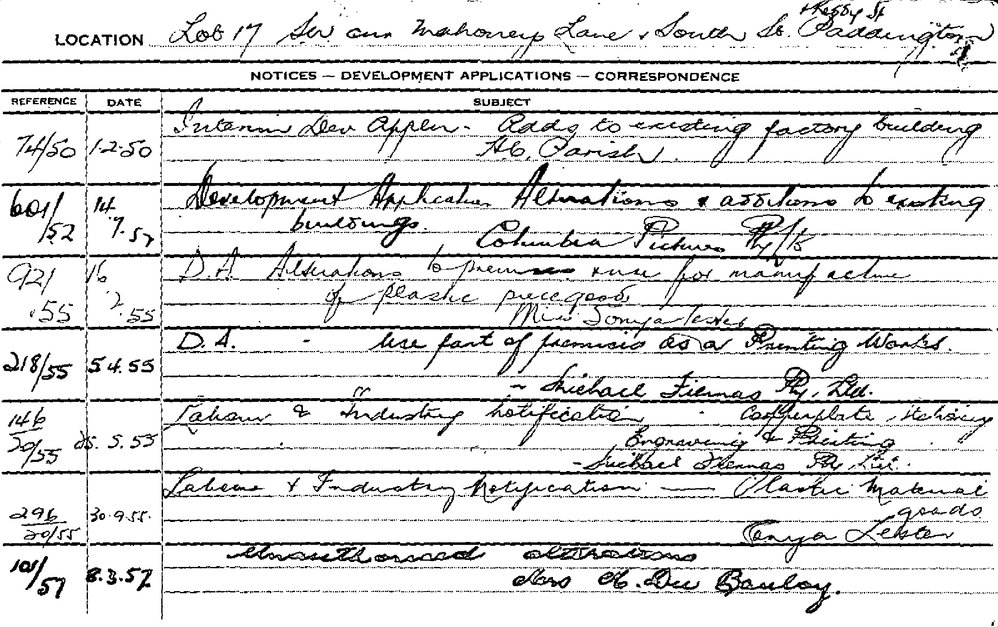 Heeley St
LOCATION Lot 17 Ser cnr Mahoney Lane & South St. Paddington
NOTICES — DEVELOPMENT APPLICATIONS — CORRESPONDENCE
REFERENCE DATE SUBJECT
74/50 1.2.50 Interim Dev Appln - Adds to existing factory building
Parish
601/52 14.7.52 Development Application Alterations & additions to existing
buildings. Columbia Pictures Pty/Ld
921.55 16.2.55 D.A Alterations to premises & use for manufacture
of plastic piece goods
Miss Tonya Lester
218/55 5.4.55 D.A. - Use part of premises as a Printing Works.
- Michael Pty. Ltd.
146/20/55 25.5.55 Labour & Industry notification - Copperplate, etching
Engraving & Printing
- Michael Pty Ltd.
296/20/55 30.9.55 Labour & Industry Notification — Plastic Material
goods
Tonya Lester
101/57 8.3.57 Unauthorised alterations
Mrs